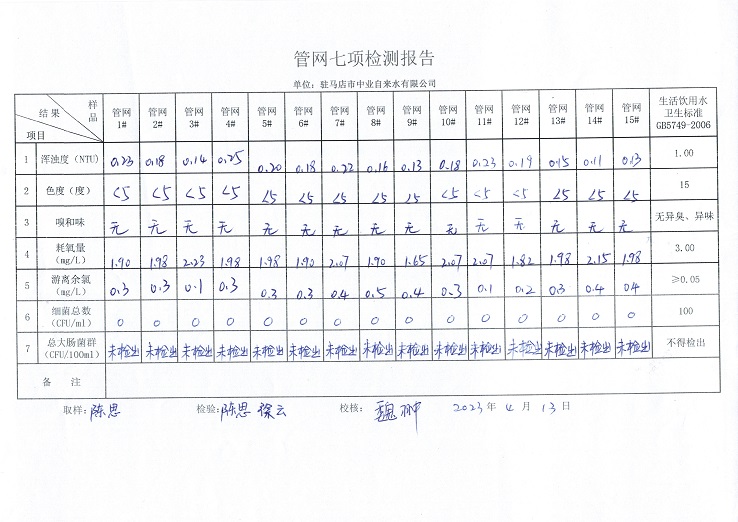 管网七项检测报告
单位：驻马店市中业自来水有限公司
结果 样品 项目 管网1# 管网2# 管网3# 管网4# 管网5# 管网6# 管网7# 管网8# 管网9# 管网10# 管网11# 管网12# 管网13# 管网14# 管网15# 生活饮用水卫生标准GB5749-2006
1 浑浊度（NTU） 0.23 0.18 0.14 0.25 0.20 0.18 0.22 0.16 0.13 0.18 0.23 0.19 0.15 0.11 0.13 1.00
2 色度（度） <5 <5 <5 <5 <5 <5 <5 <5 <5 <5 <5 <5 <5 <5 <5 15
3 嗅和味 无 无 无 无 无 无 无 无 无 无 无 无 无 无 无 无异臭、异味
4 耗氧量（mg/L） 1.90 1.98 2.23 1.98 1.98 1.90 2.07 1.90 1.65 2.07 2.07 1.82 1.98 2.15 1.98 3.00
5 游离余氯（mg/L） 0.3 0.3 0.1 0.3 0.3 0.3 0.4 0.5 0.4 0.3 0.1 0.2 0.3 0.4 0.4 ≥0.05
6 细菌总数（CFU/ml） 0 0 0 0 0 0 0 0 0 0 0 0 0 0 0 100
7 总大肠菌群（CFU/100ml） 未检出 未检出 未检出 未检出 未检出 未检出 未检出 未检出 未检出 未检出 未检出 未检出 未检出 未检出 未检出 不得检出
备 注
取样：陈思 检验：陈思 徐云 校核：魏翀 2023年4月13日